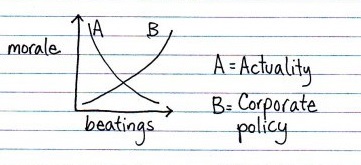 A B
morale
A = Actuality
B = Corporate
policy
beatings